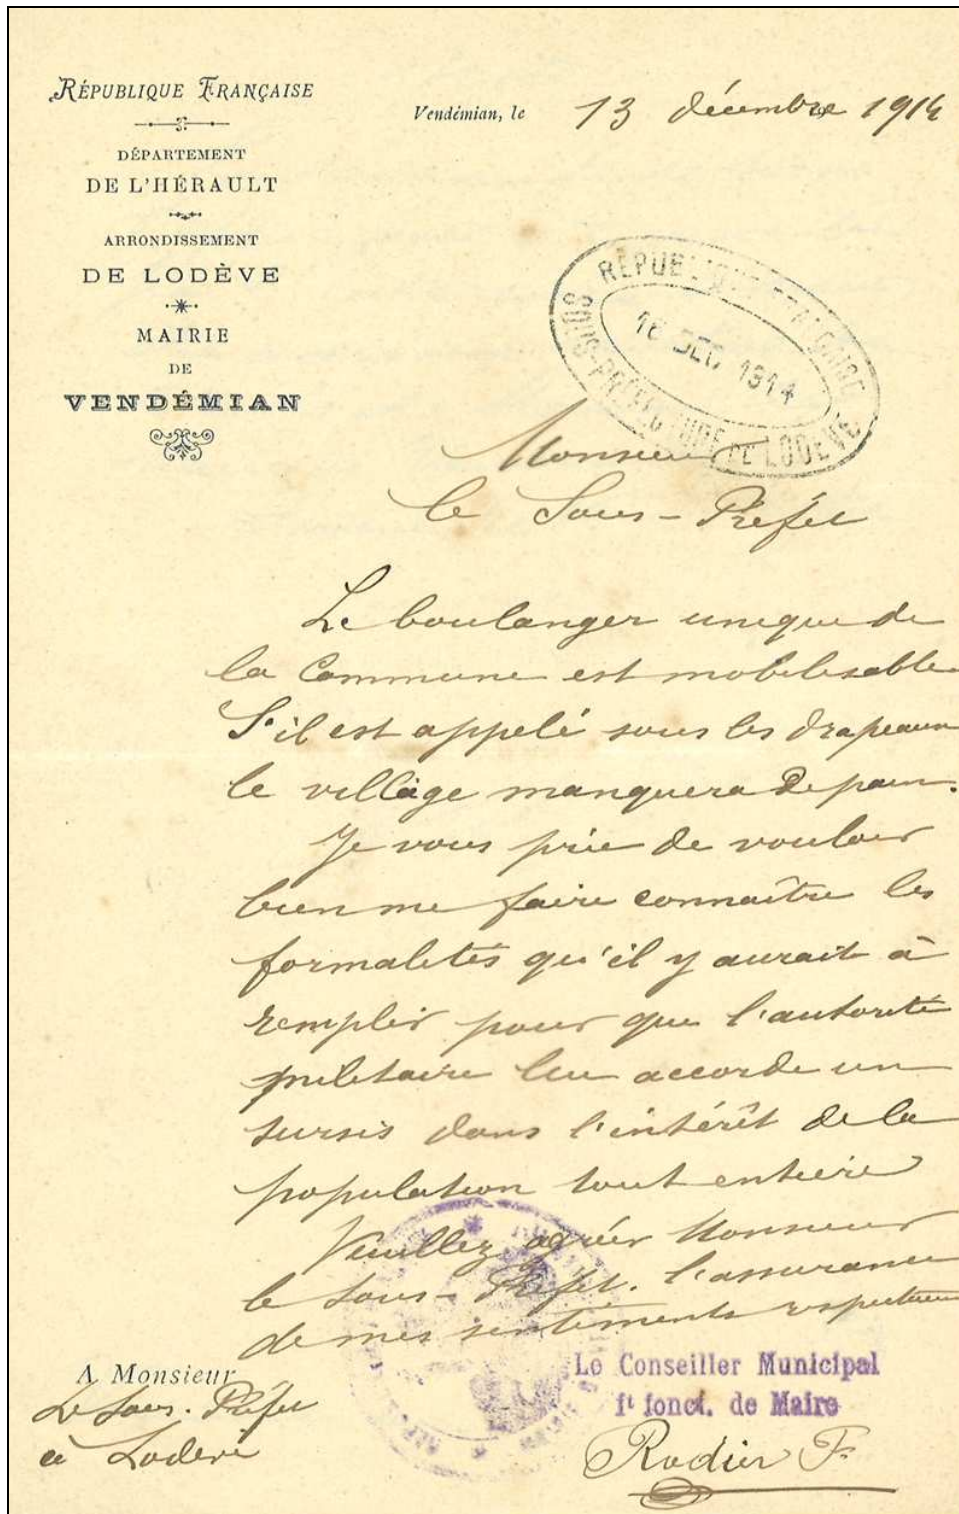 RÉPUBLIQUE FRANÇAISE
DÉPARTEMENT
DE L'HÉRAULT
ARRONDISSEMENT
DE LODÈVE
MAIRIE
DE
VENDÉMIAN
Vendémian, le 13 décembre 1914
RÉPUBLIQUE FRANÇAISE
16 DEC 1914
SOUS-PRÉFECTURE DE LODÈVE
Monsieur
le Sous-Préfet
Le boulanger unique de
la Commune est mobilisable
S'il est appelé sous les drapeaux
le village manquera de pain.
Je vous prie de vouloir
bien me faire connaître les
formalités qu'il y aurait à
remplir pour que l'autorité
militaire lui accorde un
sursis dans l'intérêt de la
population tout entière
Veuillez agréer Monsieur
le Sous-Préfet. l'assurance
de mes sentiments respectueux
A Monsieur
Le Sous-Préfet
à Lodève
Le Conseiller Municipal
ft fonct. de Maire
Rodier F.